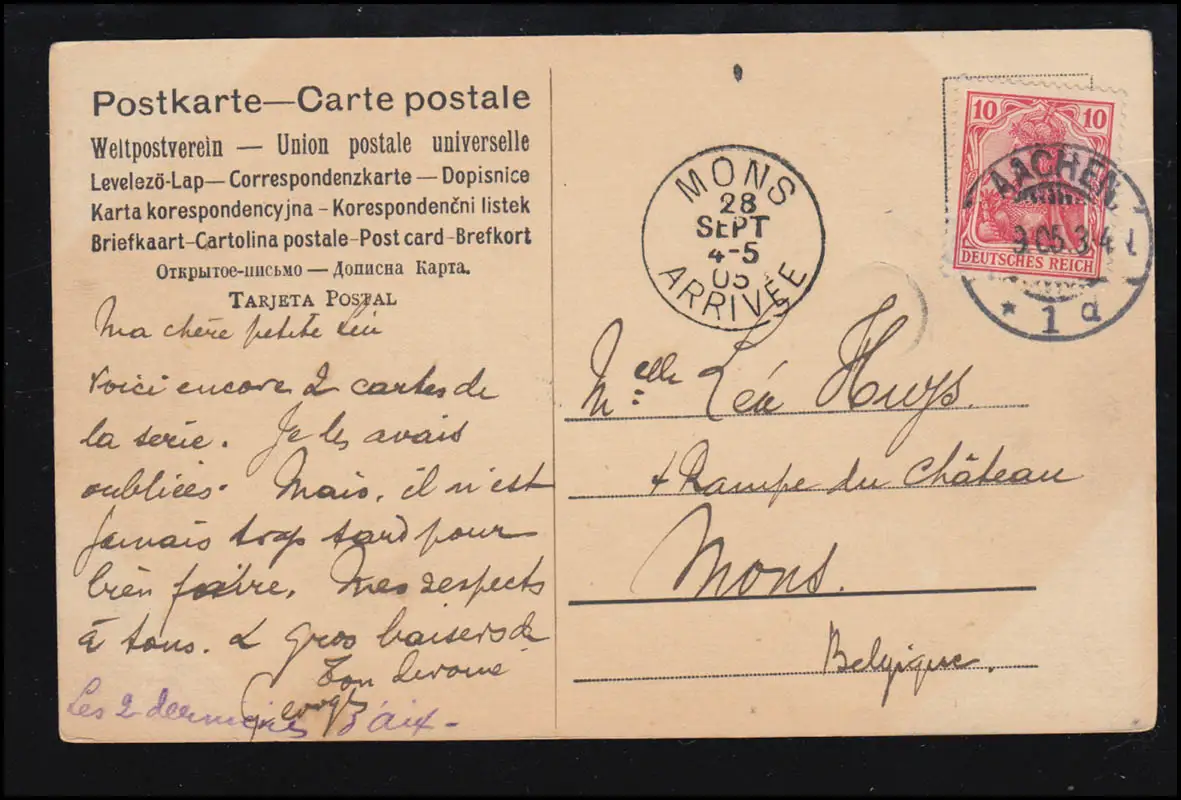 Postkarte—Carte postale
Weltpostverein — Union postale universelle
Levelező-Lap— Correspondenzkarte — Dopisnice
Karta korespondencyjna - Korespondenční listek
Briefkaart-Cartolina postale-Post card-Brefkort
Открытое-письмо — Дописна Карта.
TARJETA POSTAL
Ma chère petite
Voici encore 2 cartes de
la serie. Je les avais
oubliées. Mais, il n'est
jamais trop tard pour
bien faire. Mes respects
à tous. 2 gros baisers de
Ton
Les 2 dernières d'aix-
MONS
28
SEPT
4-5
05
ARRIVÉE
10 10
DEUTSCHES REICH
AACHEN
* 1 d
Melle Léa Huys.
Rampe du Château
Mons.
Belgique.